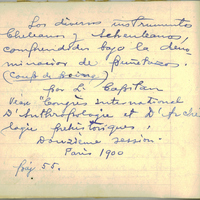 Los diversos instrumentos
Chelleanos y Acheuleanos,
comprendidos bajo la deno-
minacion de puñetazos.
(Coup de poing)
por L. Capitan
Vease "Congrès international
D'Anthropologie et D'Arché-
ologie préhistoriques,
Douzième session.
Paris 1900
pag 55.